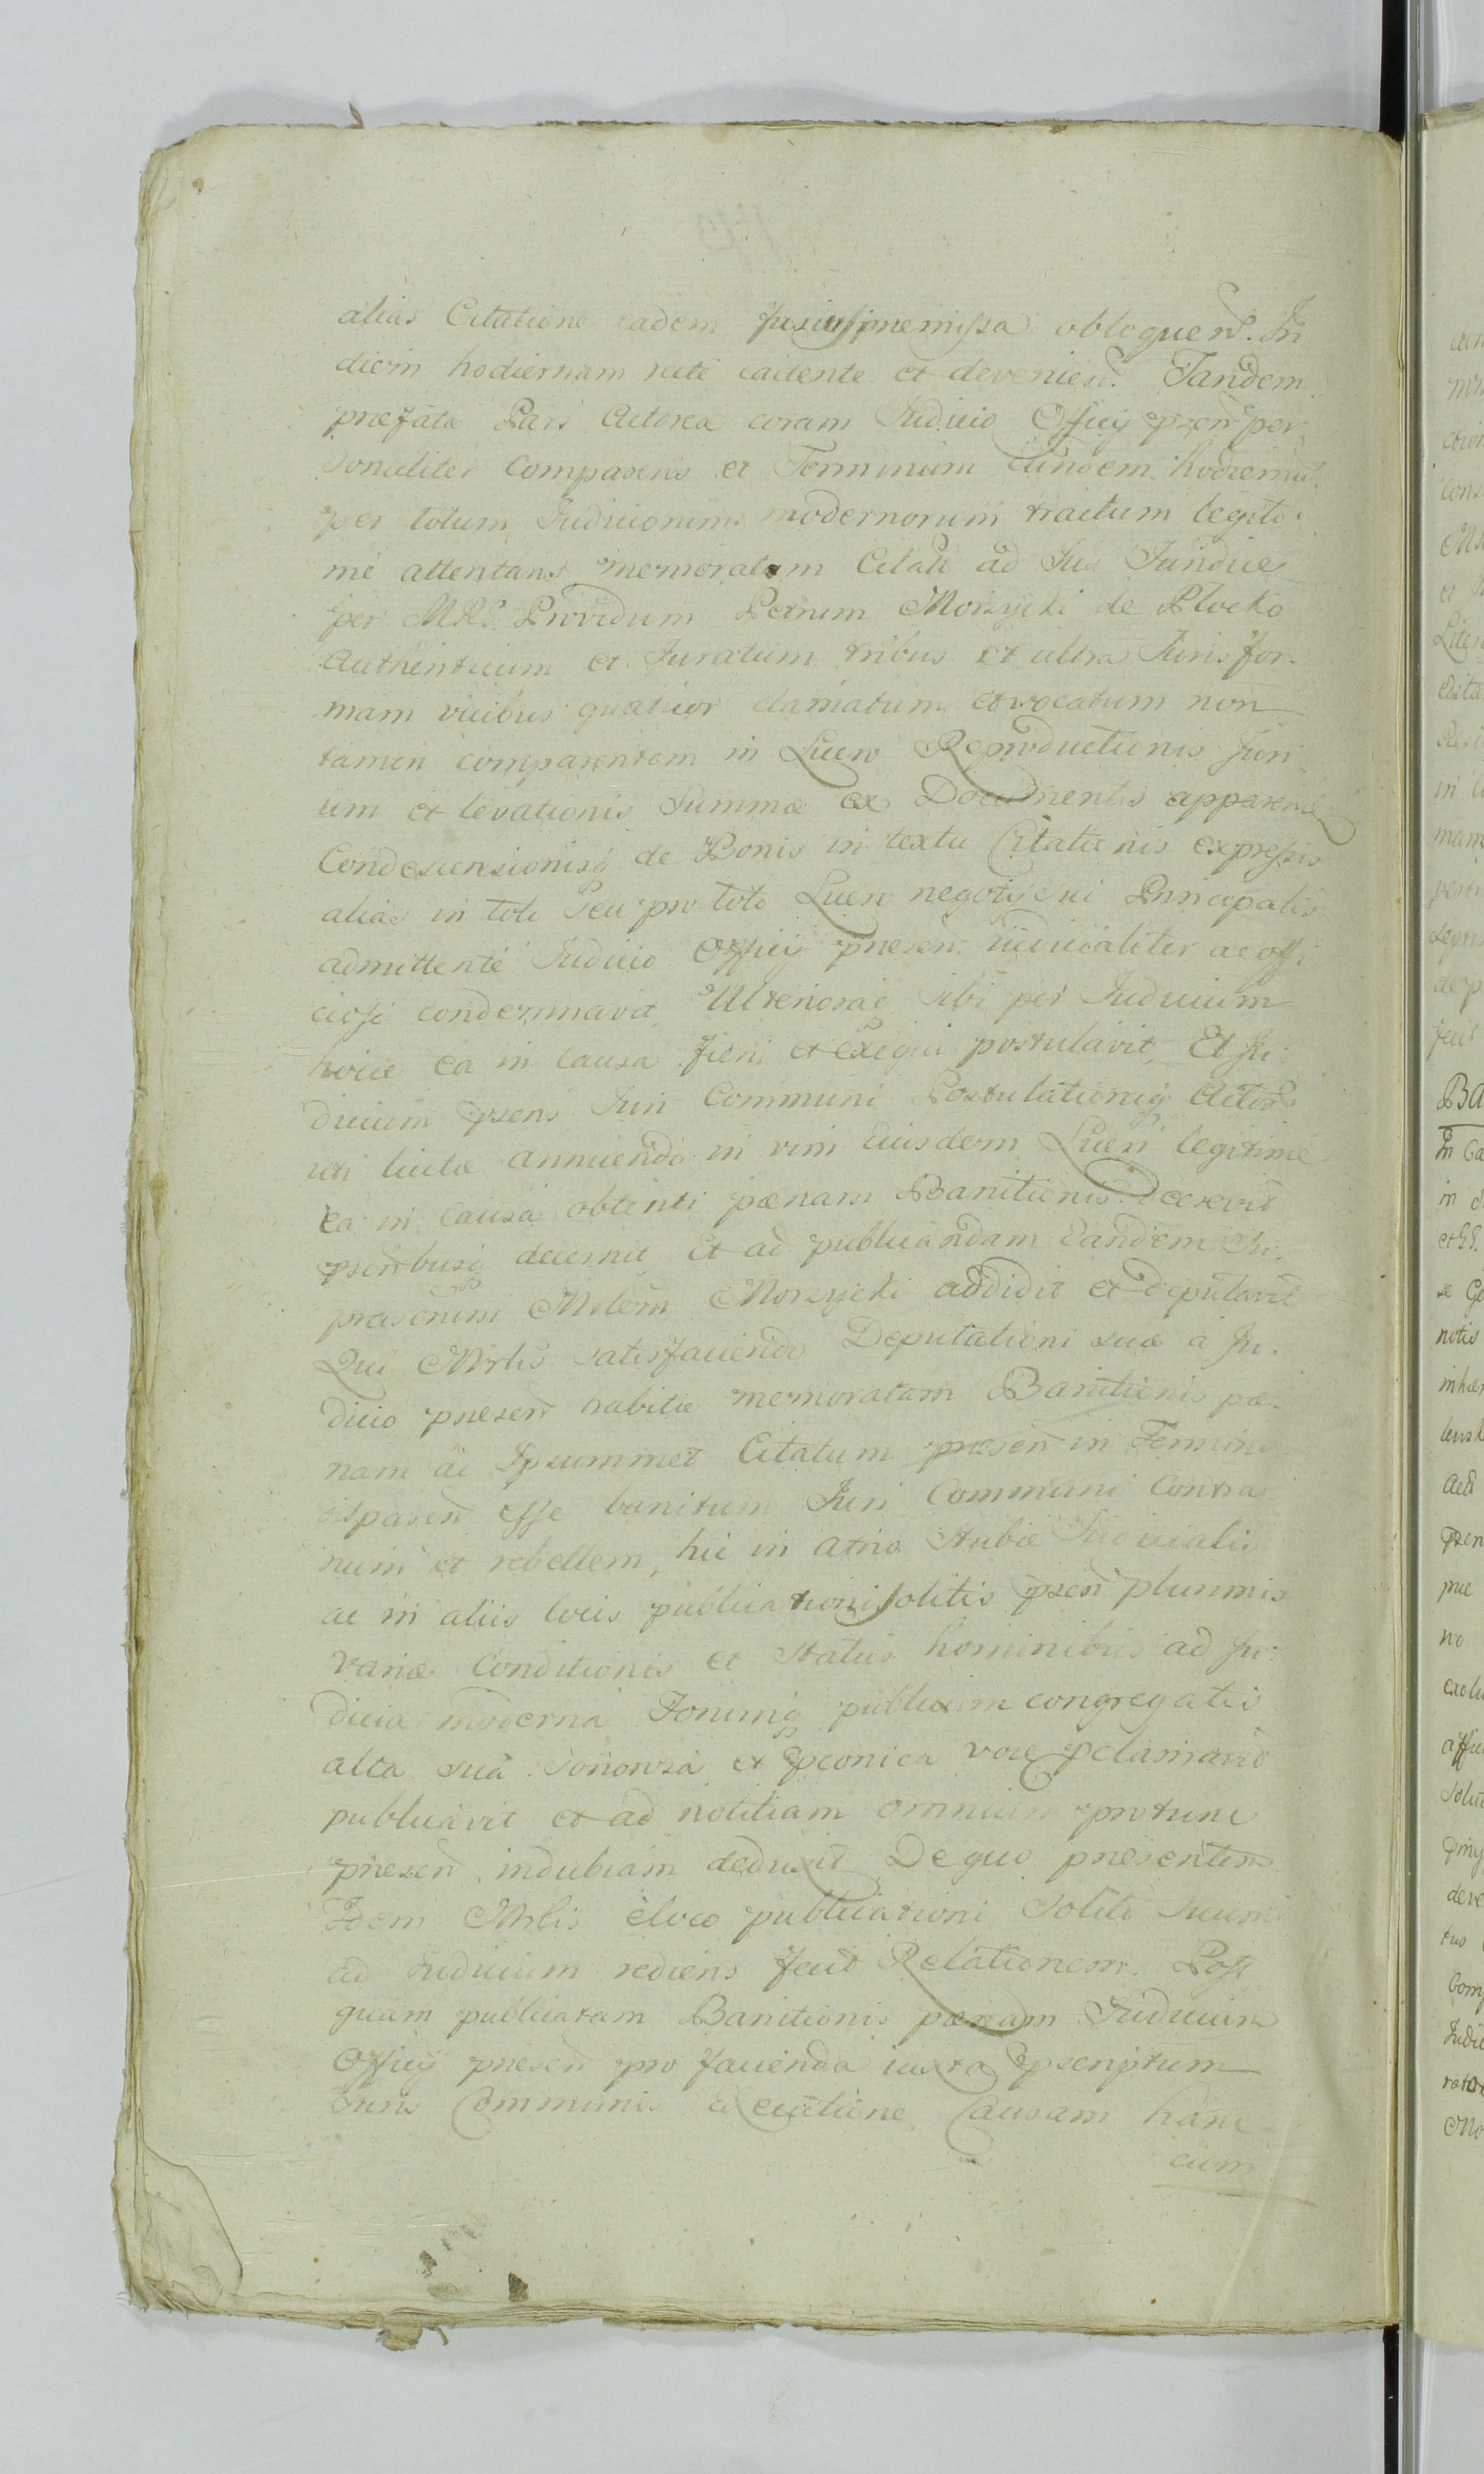 alias Citatione eadem fusius præmissa obloquen. In
diem hodiernam rite cadente et devenien. Tandem
præfata Pars Actorea coram Judicio Officij præsen per
sonaliter comparens et Terminum eundem hodiernum
per totum Judiciorum modernorum tractum legiti
me attentans memoratum Citatū ad Jus Juridice
per MRG Providum Petrum Morzycki de Plocko
Authenticum et Juratum tribus et ultra Juris for-
mam vicibus quatuor clamatum et vocatum non
tamen comparentem in Lucro Reproductionis Juri
um et levationis Summæ ex Documentis apparen
Condescensionisq de Bonis in textu Citationis expressis
alias in toto seu pro toto Lucro negotij sui Principalis
admittente Judicio Officij præsen. iudicialiter ac offi
ciose condemnavit, Ulterioraq sibi per Judicium
hocce ea in causa fieri et exequi postulavit, Et Ju-
dicium psens Juri Communi Postulationiq Actor
uti luctæ annuendo in vim Eiusdem Lucri legitime
ea in causa obtenti pænam Banitionis decrevit
psentibusq decernit, Et ad publicandam Eandem Ju.
præsentem Mnlem Morzycki addidit et deputavit
Qui Mnlis satisfaciendo Deputationi suæ à Ju.
dicio præsen habitæ memoratam Banitionis pæ-
nam ac Ipsummet Citatum præsen in Termino
disparen esse banitum Juri Communi Contra
rium et rebellem, hic in atrio Stubæ Judicialis
ac in aliis locis publicationi solitis psen plurimis
variæ Conditionis et Status hominibus ad Ju-
dicia moderna Forumq publicum congregatis
alta suâ sonorosa et pconica voce pclamavit
publicavit et ad notitiam omnium protunc
præsen. indubiam deduxit De quo præsentem
Idem Mnlis è loco publicationi solito suum
ad Judicium rediens fecit Relationem. Post
quam publicatam Banitionis pænam Judicium
Officij præsen pro facienda iuxta pscriptum
Juris Communis Executione, Causam hanc
cum